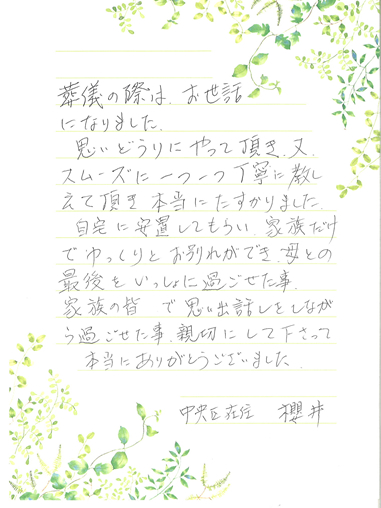 葬儀の際は、お世話
になりました。
思いどうりにやって頂き、又、
スムーズに一つ一つ丁寧に教し
えて頂き本当にたすかりました。
自宅に安置してもらい、家族だけ
でゆっくりとお別れができ、母との
最後をいっしょに過ごせた事、
家族の皆で思い出話しをしなが
ら過ごせた事、親切にして下さって
本当にありがとうございました。
中央区在住 櫻井